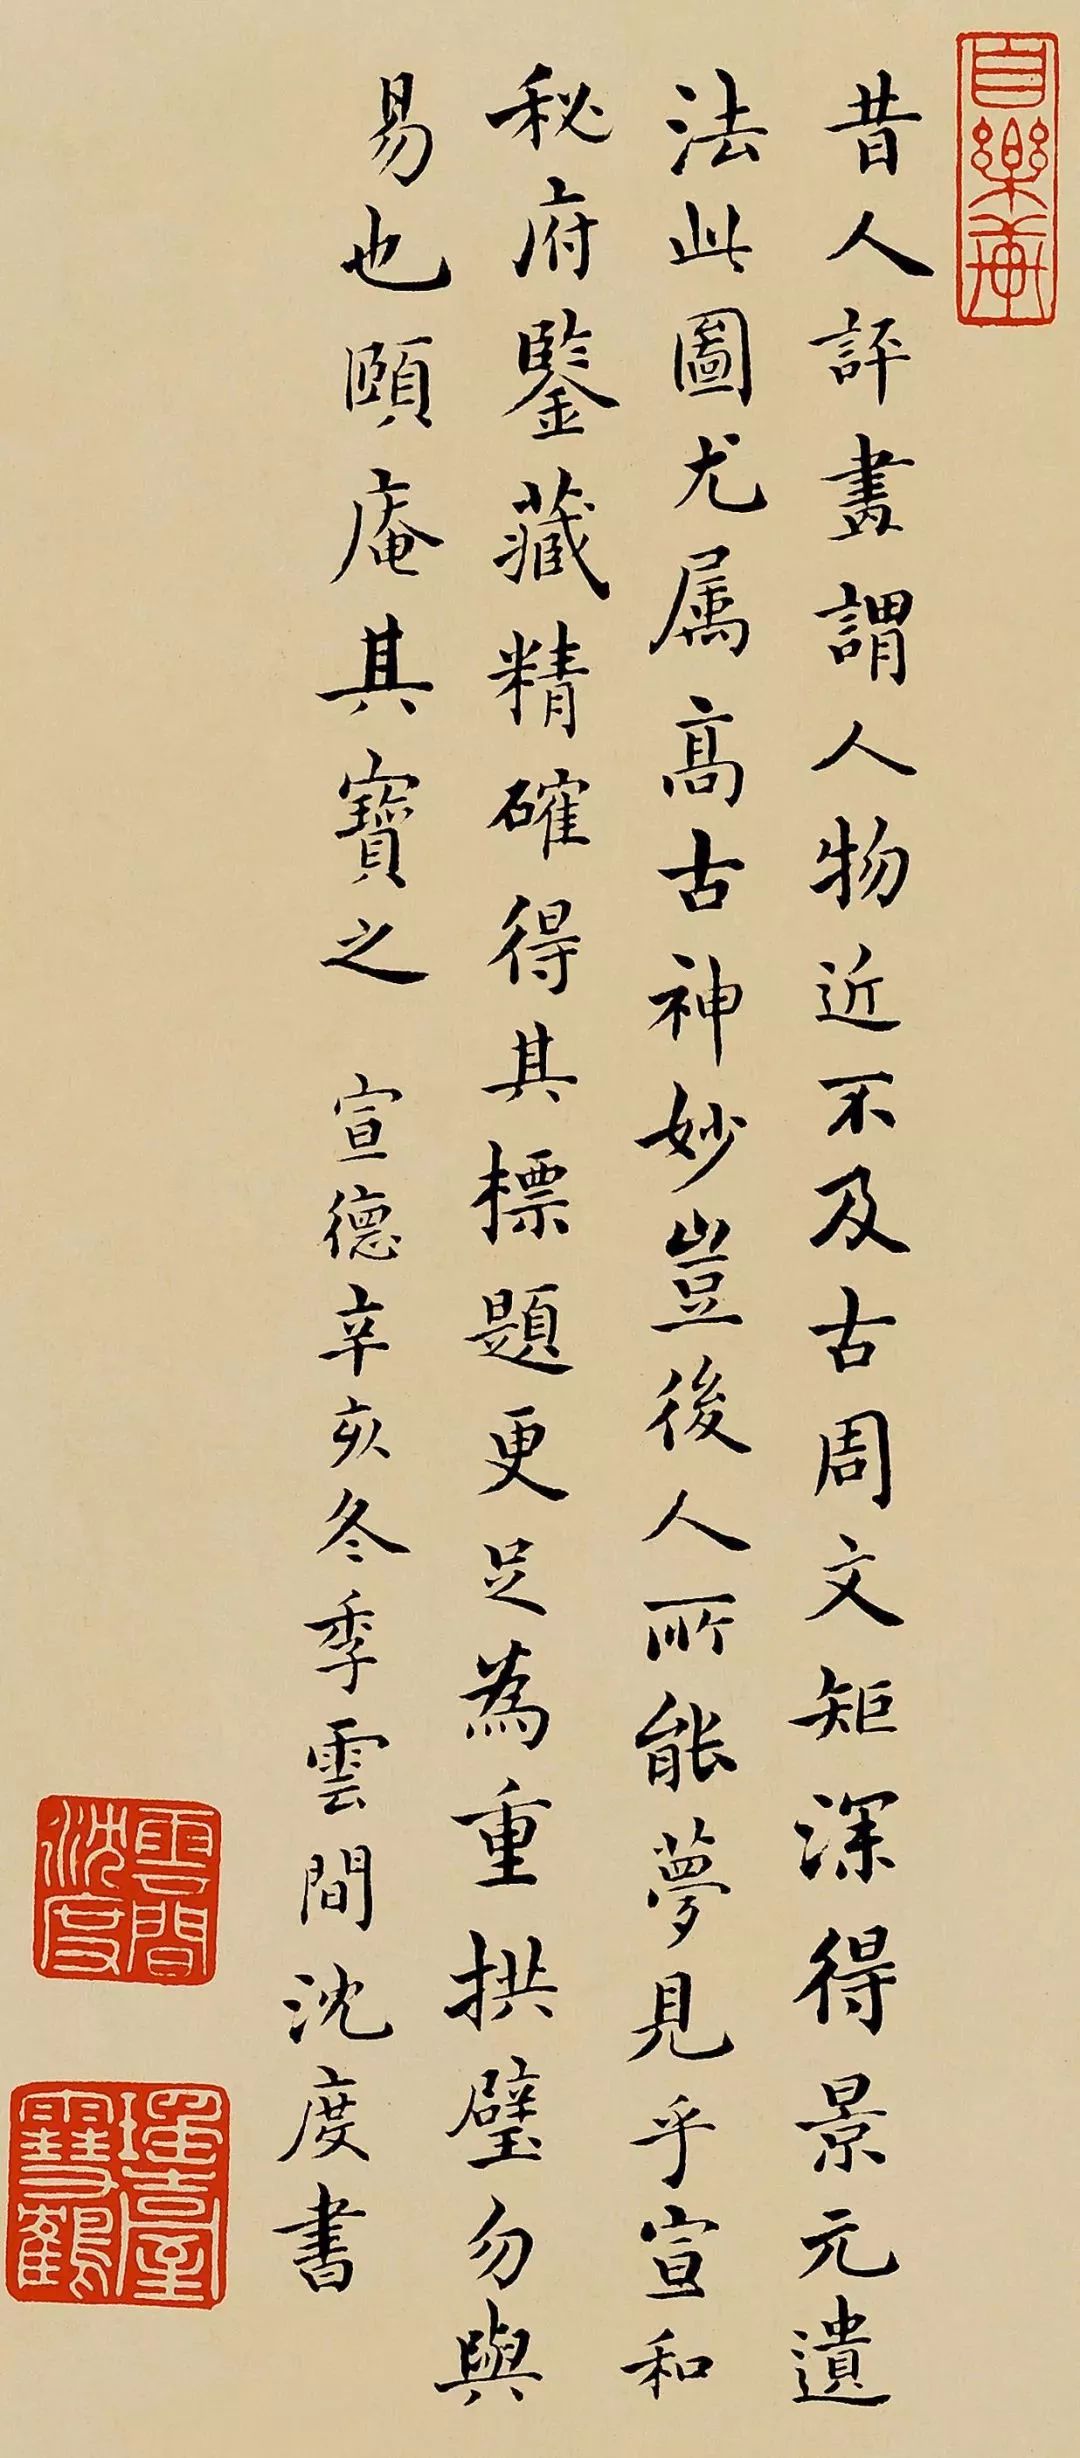 自樂齋
昔人評畫謂人物近不及古周文矩深得景元遺
法此圖尤属高古神妙豈後人所能夢見乎宣和
秘府鑒藏精確得其標題更足為重拱璧勿與
易也頤庵其寶之 宣德辛亥冬季雲間沈度書
雲間沈度
瑤臺雪鶴